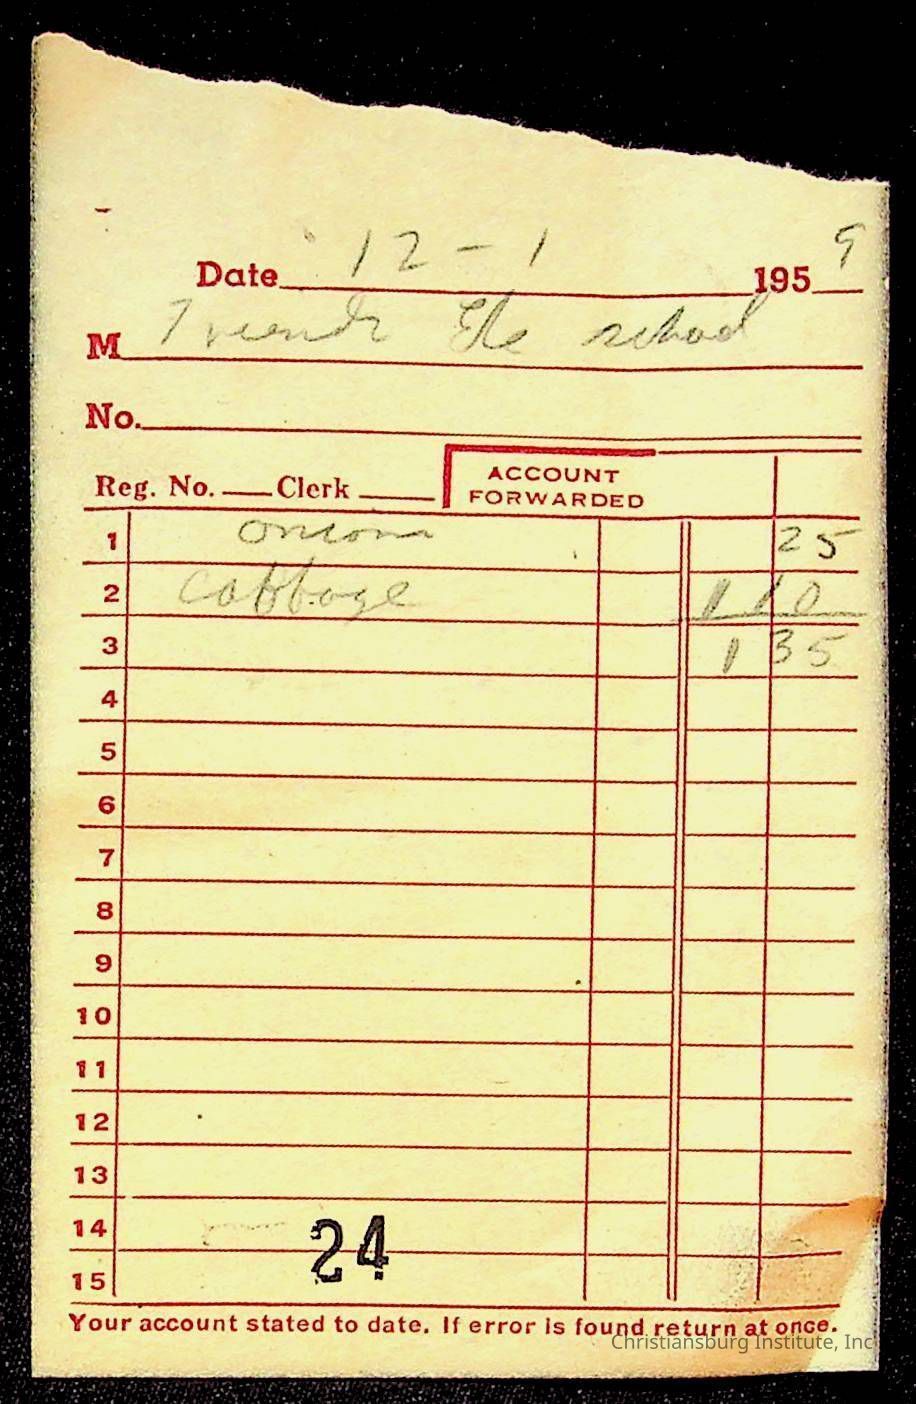 Date 12 - 1 1959
M Friends Ele school
No.
Reg. No. Clerk ACCOUNT FORWARDED
1 onions 25
2 Cabbage 1 10
3 1 35
4
5
6
7
8
9
10
11
12
13
14
15
24
Your account stated to date. If error is found return at once.
Christiansburg Institute, Inc